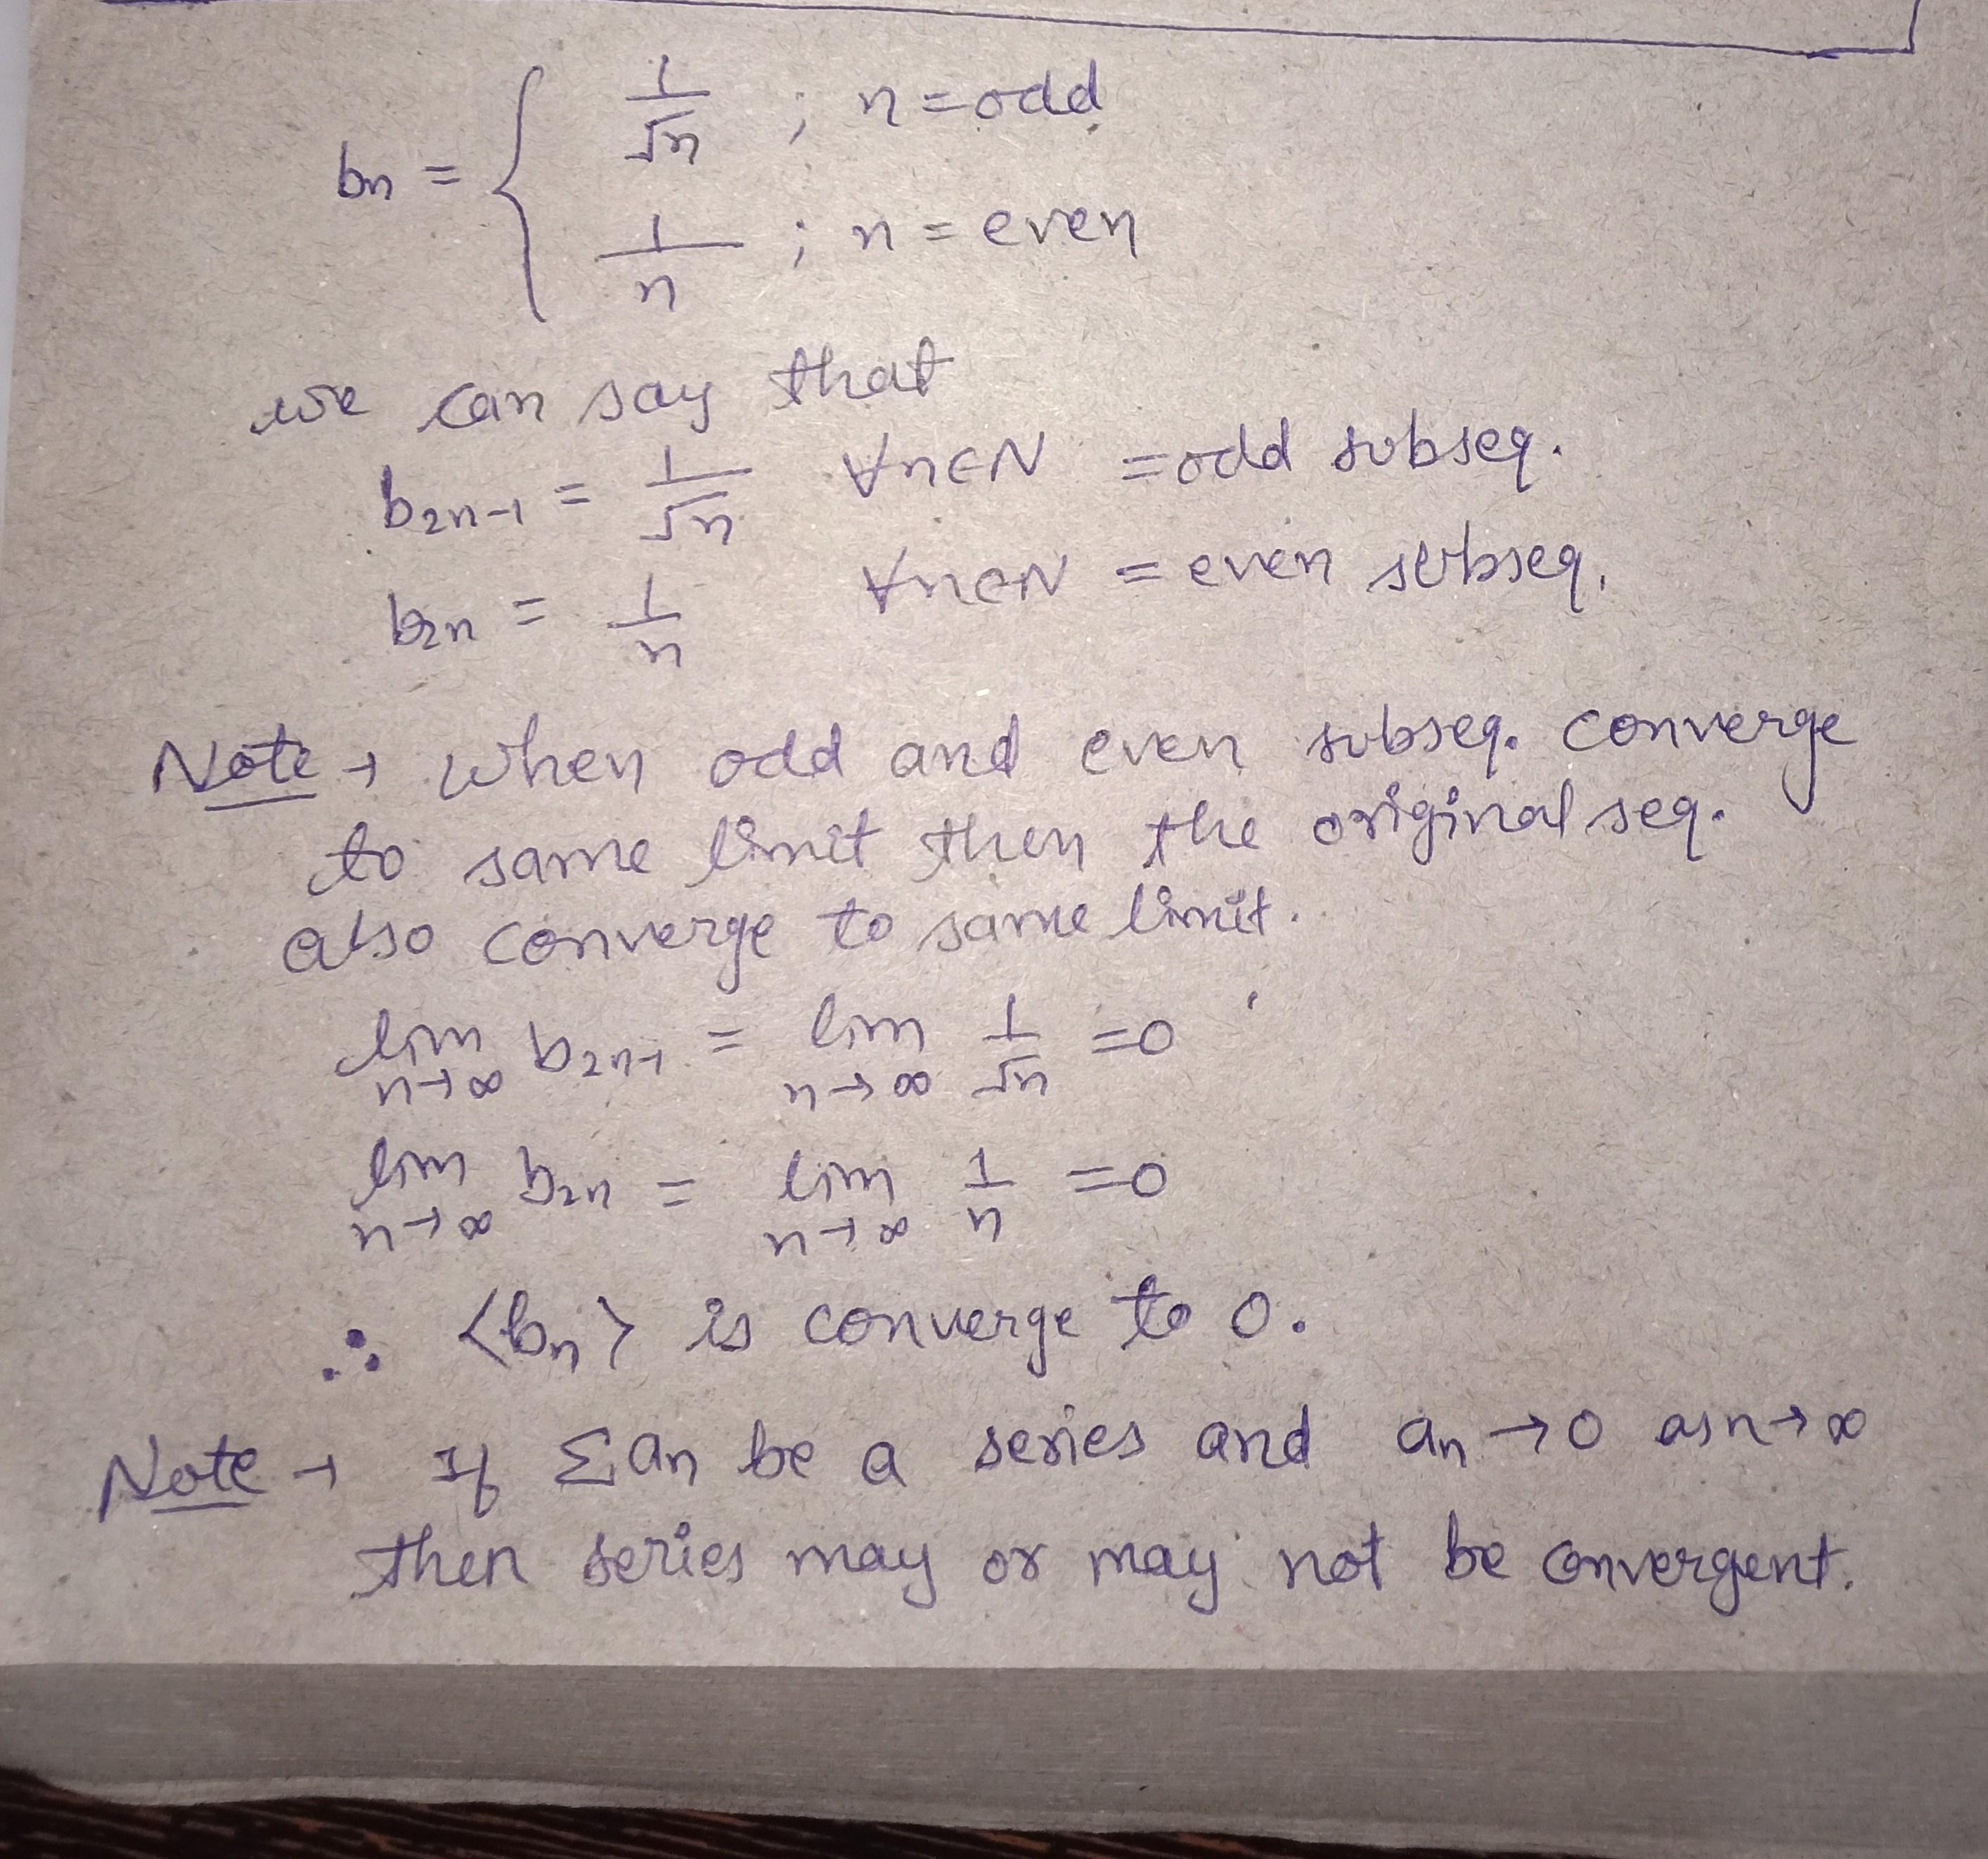 bn = { 1/√n ; n = odd
1/n ; n = even
we can say that
b2n-1 = 1/√n ∀n∈N = odd subseq.
b2n = 1/n ∀n∈N = even subseq.
Note → when odd and even subseq. converge
to same limit then the original seq.
also converge to same limit.
lim n→∞ b2n-1 = lim n→∞ 1/√n = 0
lim n→∞ b2n = lim n→∞ 1/n = 0
∴ <bn> is converge to 0.
Note → If Σan be a series and an → 0 as n→∞
then series may or may not be convergent.